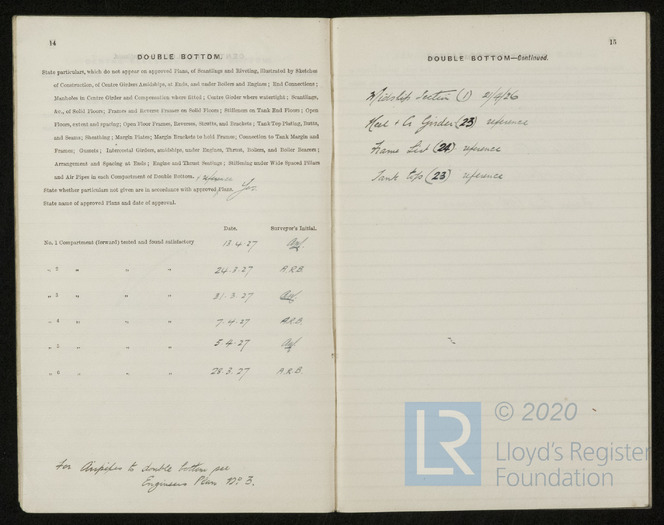 14
DOUBLE BOTTOM.
State particulars, which do not appear on approved Plans, of Scantlings and Riveting, illustrated by Sketches
of Construction, of Centre Girders Amidships, at Ends, and under Boilers and Engines; End Connections;
Manholes in Centre Girder and Compensation where fitted; Centre Girder where watertight; Scantlings,
&c., of Solid Floors; Frames and Reverse Frames on Solid Floors; Stiffeners on Tank End Floors; Open
Floors, extent and spacing; Open Floor Frames, Reverses, Struts, and Brackets; Tank Top Plating, Butts,
and Seams; Sheathing; Margin Plates; Margin Brackets to hold Frames; Connection to Tank Margin and
Frames; Gussets; Intercostal Girders, amidships, under Engines, Thrust, Boilers, and Boiler Bearers;
Arrangement and Spacing at Ends; Engine and Thrust Seatings; Stiffening under Wide Spaced Pillars
and Air Pipes in each Compartment of Double Bottom. + reference
State whether particulars not given are in accordance with approved Plans. Yes
State name of approved Plans and date of approval.
Date. Surveyor's Initial.
No. 1 Compartment (forward) tested and found satisfactory 13.4.27
„ 2 „ „ „ 24.3.27 A.R.B.
„ 3 „ „ „ 31.3.27
„ 4 „ „ „ 7.4.27 A.R.B.
„ 5 „ „ „ 5.4.27
„ 6 „ „ „ 28.3.27 A.R.B.
For Airpipes to double bottom see
Engineers Plan No. 3.
15
DOUBLE BOTTOM—Continued.
Midship Section (1) 2/4/26
Keel + Cr Girder (23) reference
Frame List (24) reference
Tank tops (23) reference
LR © 2020
Lloyd's Register
Foundation